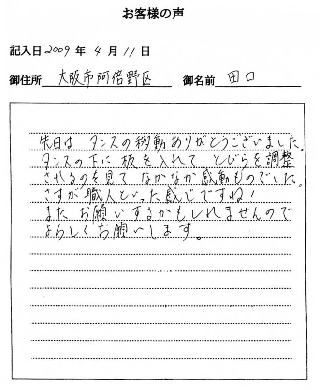 お客様の声
記入日2009年4月11日
御住所 大阪市阿倍野区 御名前 田口
先日は タンスの移動ありがとうございました。
タンスの下に板を入れて とびらを調整
されるのを見て なかなか感動ものでした。
さすが職人といった感じですね!
また お願いするかもしれませんので
よろしくお願いします。